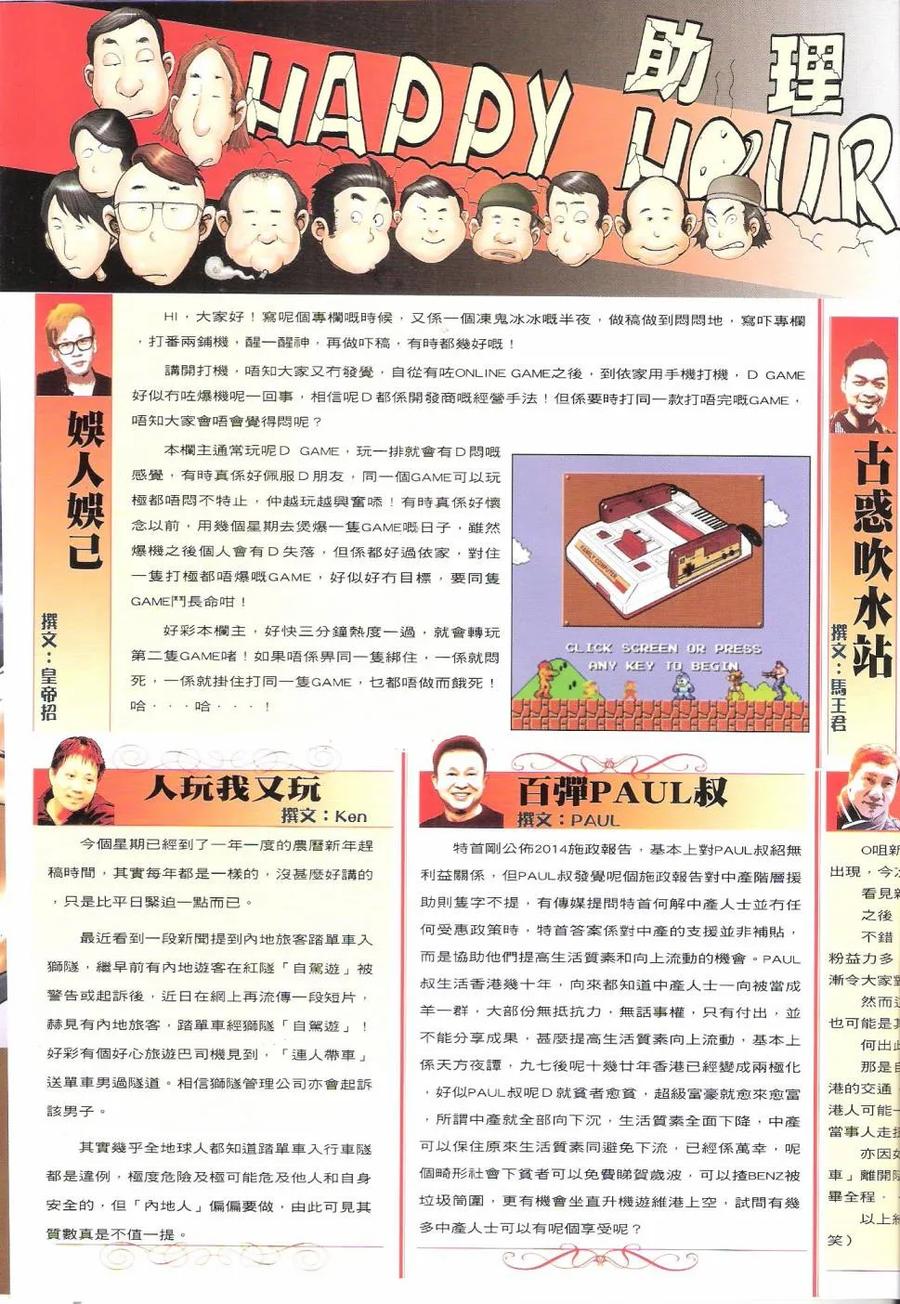 HAPPY
助理
HOUR
娛人娛己
撰文：皇帝招
HI，大家好！寫呢個專欄嘅時候，又係一個凍鬼冰冰嘅半夜，做稿做到悶悶地，寫吓專欄
，打番兩鋪機，醒一醒神，再做吓稿，有時都幾好嘅！
講開打機，唔知大家又冇發覺，自從有咗ONLINE GAME之後，到依家用手機打機，D GAME
好似冇咗爆機呢一回事，相信呢D都係開發商嘅經營手法！但係要時打同一款打唔完嘅GAME，
唔知大家會唔會覺得悶呢？
本欄主通常玩呢D GAME，玩一排就會有D悶嘅
感覺，有時真係好佩服D朋友，同一個GAME可以玩
極都唔悶不特止，仲越玩越興奮㖭！有時真係好懷
念以前，用幾個星期去煲爆一隻GAME嘅日子，雖然
爆機之後個人會有D失落，但係都好過依家，對住
一隻打極都唔爆嘅GAME，好似好冇目標，要同隻
GAME鬥長命咁！
好彩本欄主，好快三分鐘熱度一過，就會轉玩
第二隻GAME啫！如果唔係畀同一隻綁住，一係就悶
死，一係就掛住打同一隻GAME，乜都唔做而餓死！
哈・・・哈・・・！
FAMILY COMPUTER
CLICK SCREEN OR PRESS
ANY KEY TO BEGIN
古惑吹水站
撰文：馬王君
人玩我又玩
撰文：Ken
今個星期已經到了一年一度的農曆新年趕
稿時間，其實每年都是一樣的，沒甚麼好講的
，只是比平日緊迫一點而已。
最近看到一段新聞提到內地旅客踏單車入
獅隧，繼早前有內地遊客在紅隧「自駕遊」被
警告或起訴後，近日在網上再流傳一段短片，
赫見有內地旅客，踏單車經獅隧「自駕遊」！
好彩有個好心旅遊巴司機見到，「連人帶車」
送單車男過隧道。相信獅隧管理公司亦會起訴
該男子。
其實幾乎全地球人都知道踏單車入行車隧
都是違例，極度危險及極可能危及他人和自身
安全的，但「內地人」偏偏要做，由此可見其
質數真是不值一提。
百彈PAUL叔
撰文：PAUL
特首剛公佈2014施政報告，基本上對PAUL叔紹無
利益關係，但PAUL叔發覺呢個施政報告對中產階層援
助則隻字不提，有傳媒提問特首何解中產人士並冇任
何受惠政策時，特首答案係對中產的支援並非補貼，
而是協助他們提高生活質素和向上流動的機會。PAUL
叔生活香港幾十年，向來都知道中產人士一向被當成
羊一群，大部份無抵抗力，無話事權，只有付出，並
不能分享成果，甚麼提高生活質素向上流動，基本上
係天方夜譚，九七後呢十幾廿年香港已經變成兩極化
，好似PAUL叔呢D就貧者愈貧，超級富豪就愈來愈富
，所謂中產就全部向下沉，生活質素全面下降，中產
可以保住原來生活質素同避免下流，已經係萬幸，呢
個畸形社會下貧者可以免費睇賀歲波，可以揸BENZ被
垃圾筒圍，更有機會坐直升機遊維港上空，試問有幾
多中產人士可以有呢個享受呢？
O咀新
出現，今次
看見新
之後
不錯
粉益力多
漸令大家對
然而這
也可能是其
何出此
那是自
港的交通
港人可能一
當事人走擋
亦因如
車」離開隧
畢全程，
以上純
笑）